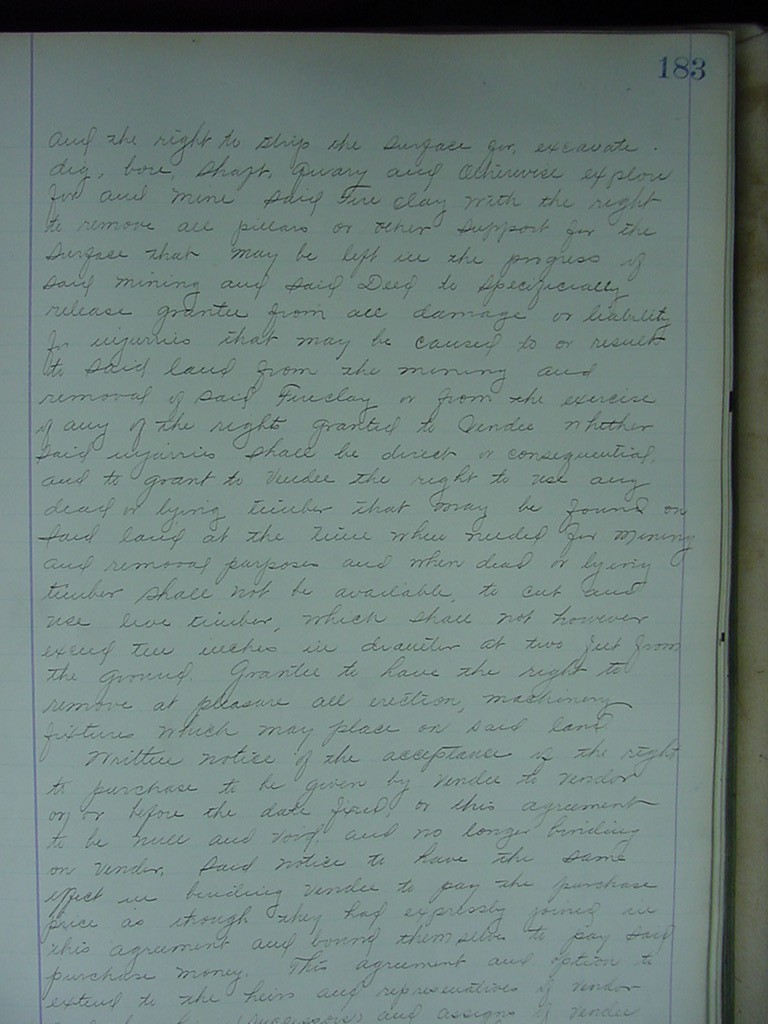 183
and the right to strip the surface for, excavate.
dig, bore, shaft, quary and otherwise explore
for and mine said Fire clay with the right
to remove all pillars or other support for the
surface that may be left in the progress of
said mining and said Deed to specificially
release grantee from all damage or liability
for injurries that may be caused to or result
to said land from the mining and
removal of said Fireclay or from the exercise
of any of the rights granted to Vendee whether
said injurries shall be direct or consequential,
and to grant to Vendee the right to use any
dead or lying timber that may be found on
said land at the time when needed for mining
and removal purposes and when dead or lying
timber shall not be available, to cut and
use live timber, which shall not however
exceed ten inches in diameter at two feet from
the ground. Grantee to have the right to
remove at pleasure all erection, machinery
fixtures which may place on said land
Written notice of the acceptance of the right
to purchase to be given by Vendee to Vendor
on or before the date fixed, or this agreement
to be null and void, and no longer binding
on Vendor, said notice to have the same
effect in binding Vendee to pay the purchase
price as though they had expressly joined in
this agreement and bound themselves to pay said
purchase money. This agreement and option to
extend to the heirs and represenatives of Vendor
(successors) and assigns of Vendee